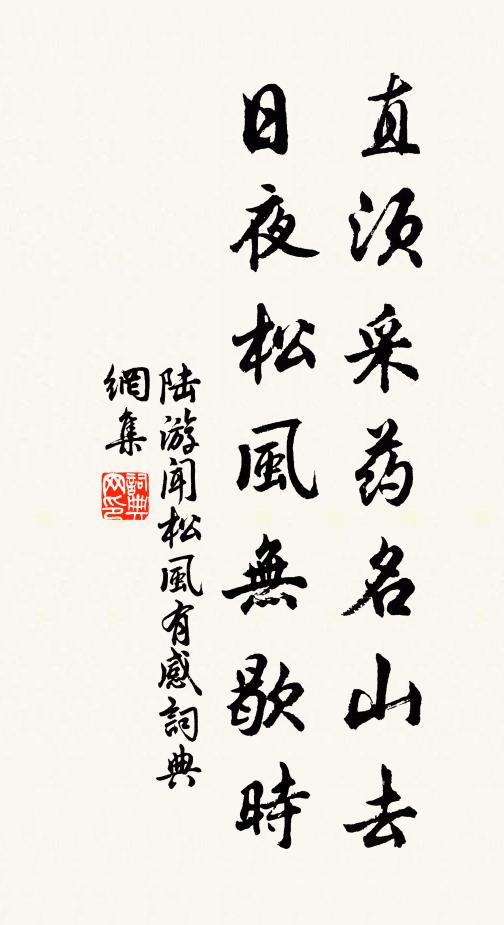 直须采药名山去
日夜松風無歇時
陆游闻松風有感詞典
網集
詞典
网印